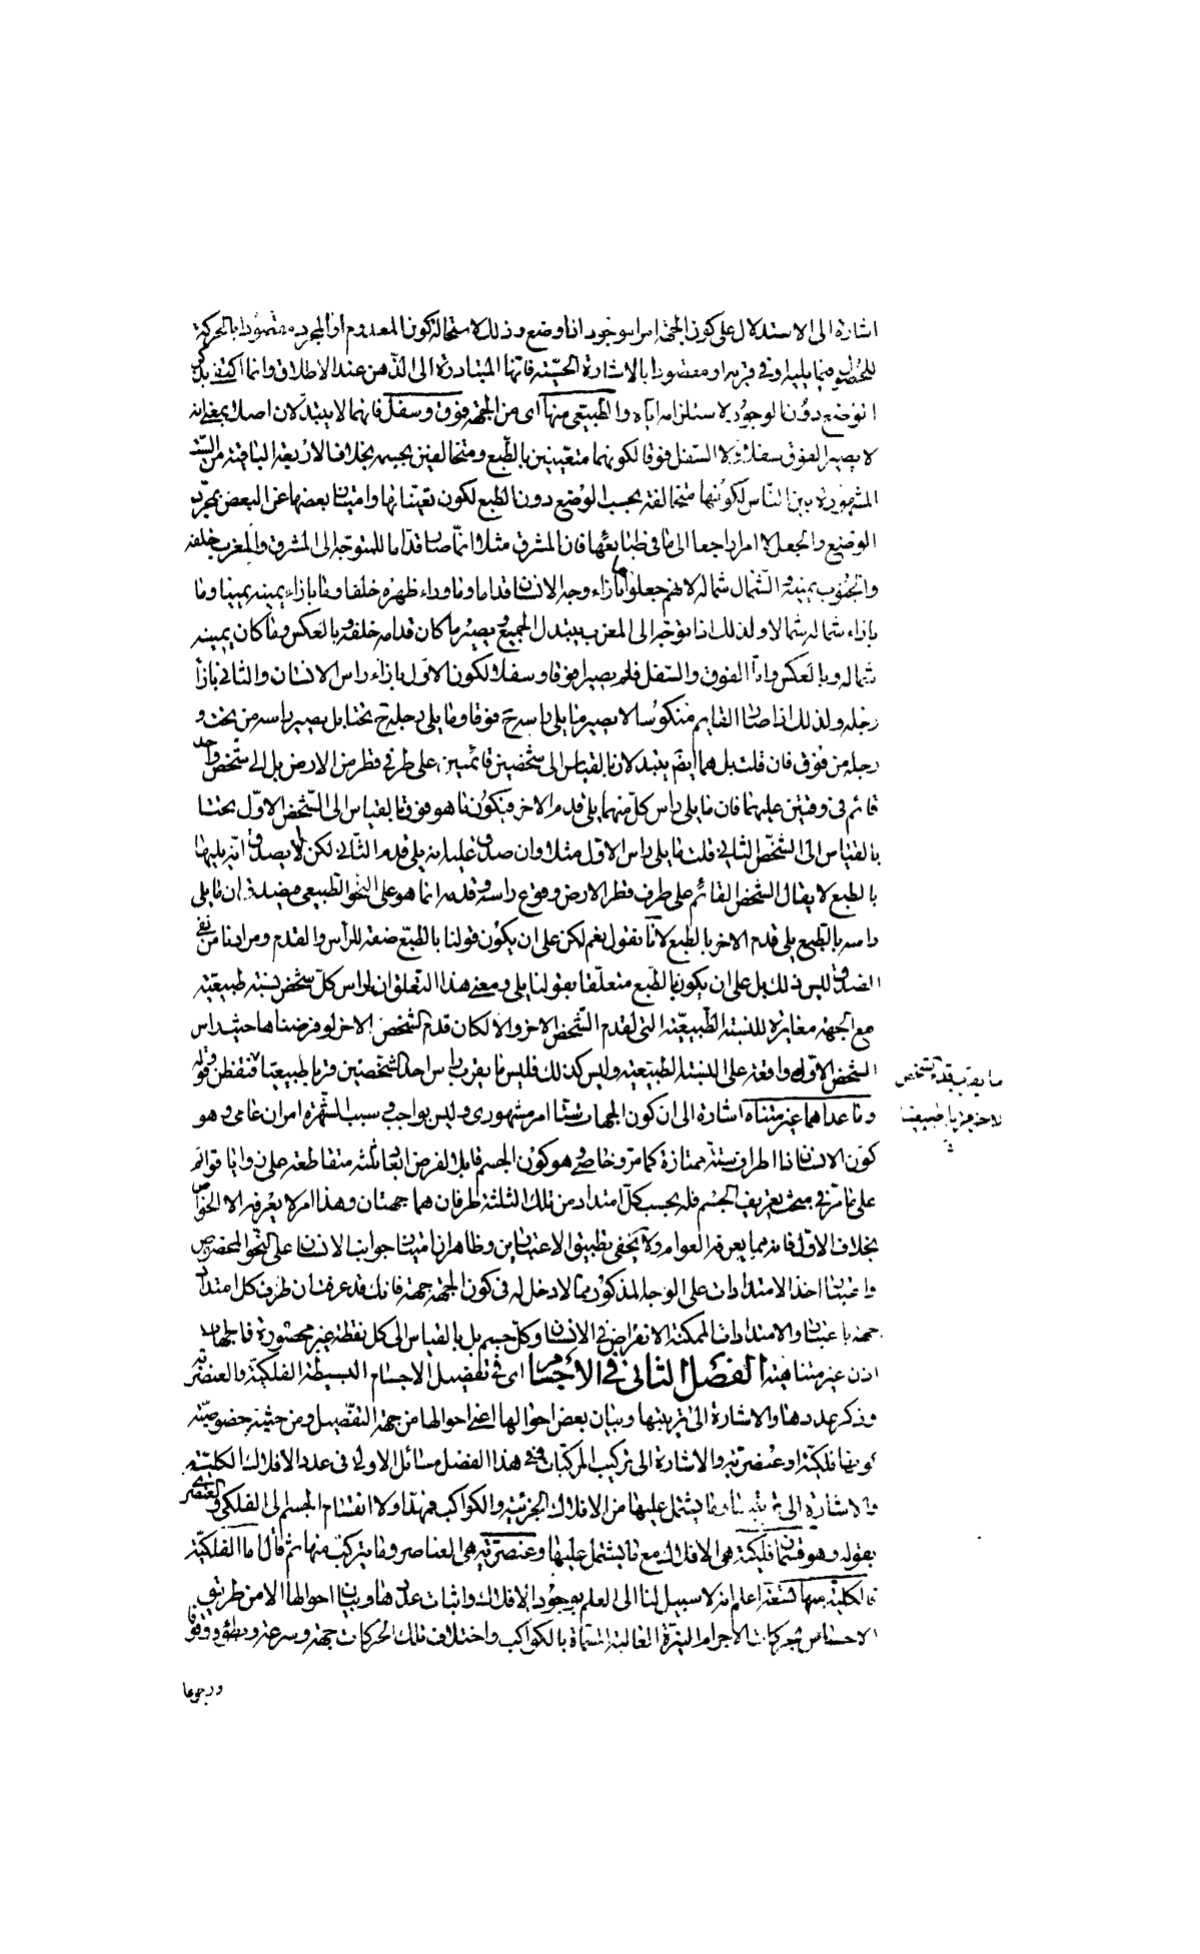 اشارة الى الاستدلال على كون الجهة امرا موجودا ذا وضع وذلك لاستحالة كون المعدوم او المجرد مقصودا بالحركة
للحصول فيما يليه وفي قربه او مقصودا بالاشارة الحسّية فانها المتبادرة الى الذهن عند الاطلاق وانما اكتفى بذكر
الوضع دون الوجود لاستلزامه اياه والطبيعي منها اى من الجهة فوق وسفل فانهما لا يتبدلان اصلا بمعنى انه
لا يصير الفوق سفلا ولا السفل فوقا لكونهما متعيّنين بالطبع ومتخالفين بحسبه بخلاف الاربعة الباقية من الستّ
المشهورة بين الناس لكونها متخالفة بحسب الوضع دون الطبع لكون تعيّناتها وامتياز بعضها عن البعض بمجرّد
الوضع والجعل لا امرا راجعا الى ما في طبائعها فان المشرق مثلا انما صار قدّاما للمتوجّه الى المشرق والمغرب خلفه
والجنوب يمينه والشمال شماله لانهم جعلوا ما بازاء وجه الانسان قداما وما وراء ظهره خلفا وما بازاء يمينه يمينا وما
بازاء شماله شمالا ولذلك اذا توجّه الى المغرب يتبدل الجميع ويصير ما كان قدامه خلفه وبالعكس وما كان يمينه
شماله وبالعكس واما الفوق والسفل فلم يصيرا فوقا وسفلا لكون الاول بازاء راس الانسان والثاني بازاء
رجله ولذلك اذا صار القايم منكوسا لا يصير ما يلي راسه ح فوقا وما يلي رجله ح تحتا بل يصير راسه من تحت و
رجله من فوق فان قلت بل هما ايضم يتبدلان بالقياس الى شخصين قائمين على طرفي قطر من الارض بل الى شخص واحد
قائم في وقتين عليهما فان ما يلي راس كلّ منهما يلي قدم الاخر فيكون ما هو فوق بالقياس الى الشخص الاوّل تحتا
بالقياس الى الشخص الثاني قلت ما يلي راس الاول مثلا وان صدق عليه انه يلي قدم الثاني لكن لا يصدق انه يليها
بالطبع لا يقال الشخص القائم على طرف قطر الارض وقوع راسه وقدمه انما هو على النحو الطبيعي فيصدق ان ما يلي
راسه بالطبع يلي قدم الاخر بالطبع لانا نقول نعم لكن على ان يكون قولنا بالطبع صفة للرأس والقدم ومرادنا من نفي
الصدق ليس ذلك بل على ان يكون بالطبع متعلقا بقولنا يلي ومعنى هذا التعلق ان لراس كلّ شخص نسبة طبيعيّة
مع الجهة مغايرة للنسبة الطبيعيّة التى لقدم الشخص الاخر والا لكان قدم الشخص الاخر لو فرضناها حيث راس
الشخص الاول واقعة على النسبة الطبيعية وليس كذلك فليس ما يقرب راس احد الشخصين قربا طبيعيّا فتفطن قوله
ما يقرب قدم الشخص
الاخر قربا طبيعيا
وما عداهما غير متناه اشارة الى ان كون الجهات ستّا امر مشهوري وليس بواجب وسبب الشهرة امران عامى وهو
كون الانسان ذا اطراف ستة ممتازة كما مرّ وخاصى وهو كون الجسم قابلا لفرض ابعاد ثلثة متقاطعة على زوايا قوائم
على ما مرّ في مبحث تعريف الجسم فله بحسب كلّ امتداد من تلك الثلثة طرفان هما جهتان وهذا امر لا يعرفه الا الخواص
بخلاف الاول فانه مما يعرفه العوام ولا يخفى تطبيق الاعتبارين وظاهر ان امتياز جوانب الانسان على النحو المخصوص
واعتبار اخذ الامتدادات على الوجه المذكور مما لا دخل له في كون الجهة جهة فانك قد عرفت ان طرف كل امتداد
جهة باعتبار والامتدادات الممكنة الانفراض في الانسان وكلّ جسم بل بالقياس الى كل نقطة غير محصورة فالجهات
اذن غير متناهية الفصل الثاني في الأجسام اى في تفصيل الاجسام البسيطة الفلكية والعنصرية
وذكر عددها والاشارة الى ترتيبها وبيان بعض احوالها اعنى احوالها من جهة التفصيل ومن حيث خصوصيّة
كونها فلكية او عنصرية والاشارة الى تركيب المركبات ففي هذا الفصل مسائل الاولى في عدد الافلاك الكلية
والاشارة الى ترتيبها وما يشتمل عليها من الافلاك الجزئية والكواكب فمهّد اولا انقسام الجسم الى الفلكي والعنصري
بقوله وهو قسمان فلكية هى الافلاك مع ما يشتمل عليها وعنصرية هى العناصر وما يتركب منها ثم قال اما الفلكية
فالكلية منها تسعة اعلم انه لا سبيل لنا الى العلم بوجود الافلاك واثبات عددها وبيان احوالها الا من طريق
الاحساس بحركات الاجرام النيرة العالية المسماة بالكواكب واختلاف تلك الحركات جهة وسرعة وبطؤ ووقوفا
ورجوعا